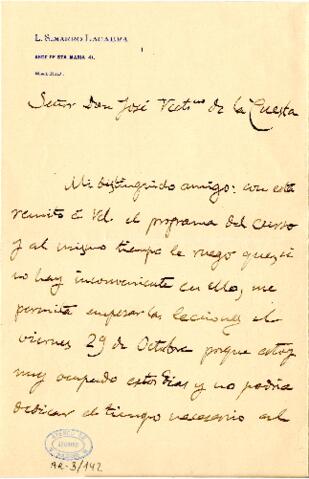 L. SIMARRO LACABRA
MADRID.
Señor Don José Victno de la Cuesta
Mi distinguido amigo: con esta
remito á Vd. el programa del curso
y al mismo tiempo le ruego que si
no hay inconveniente en ello, me
permita empezar las lecciones el
viernes 29 de Octubre porque estoy
muy ocupado estos dias y no podria
dedicar el tiempo necesario al
AR-3/142